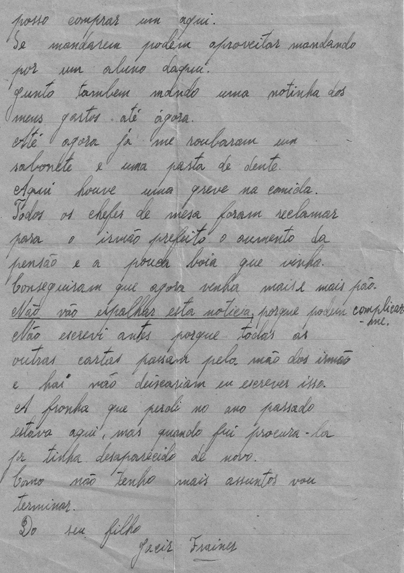 posso comprar um aqui.
Se mandarem podem aproveitar mandando
por um aluno daqui.
Junto tambem mando uma notinha dos
meus gastos até ágora.
Até agora já me roubaram um
sabonete e uma pasta de dente.
Aqui houve uma greve na comida.
Todos os chefes de mesa foram reclamar
para o irmão prefeito o aumento da
pensão e a pouca boia que vinha.
Conseguiram que agora venha mais e mais pão.
Não vão espalhar esta noticia, porque podem complicar-me.
Não escrevi antes porque todas as
outras cartas passam pela mão dos irmão
e não deixariam eu escrever isso.
A fronha que perdi no ano passado
estava aqui, mas quando fui procura-la
já tinha desaparecido de novo.
Como não tenho mais assuntos vou
terminar.
Do seu filho
Jacir